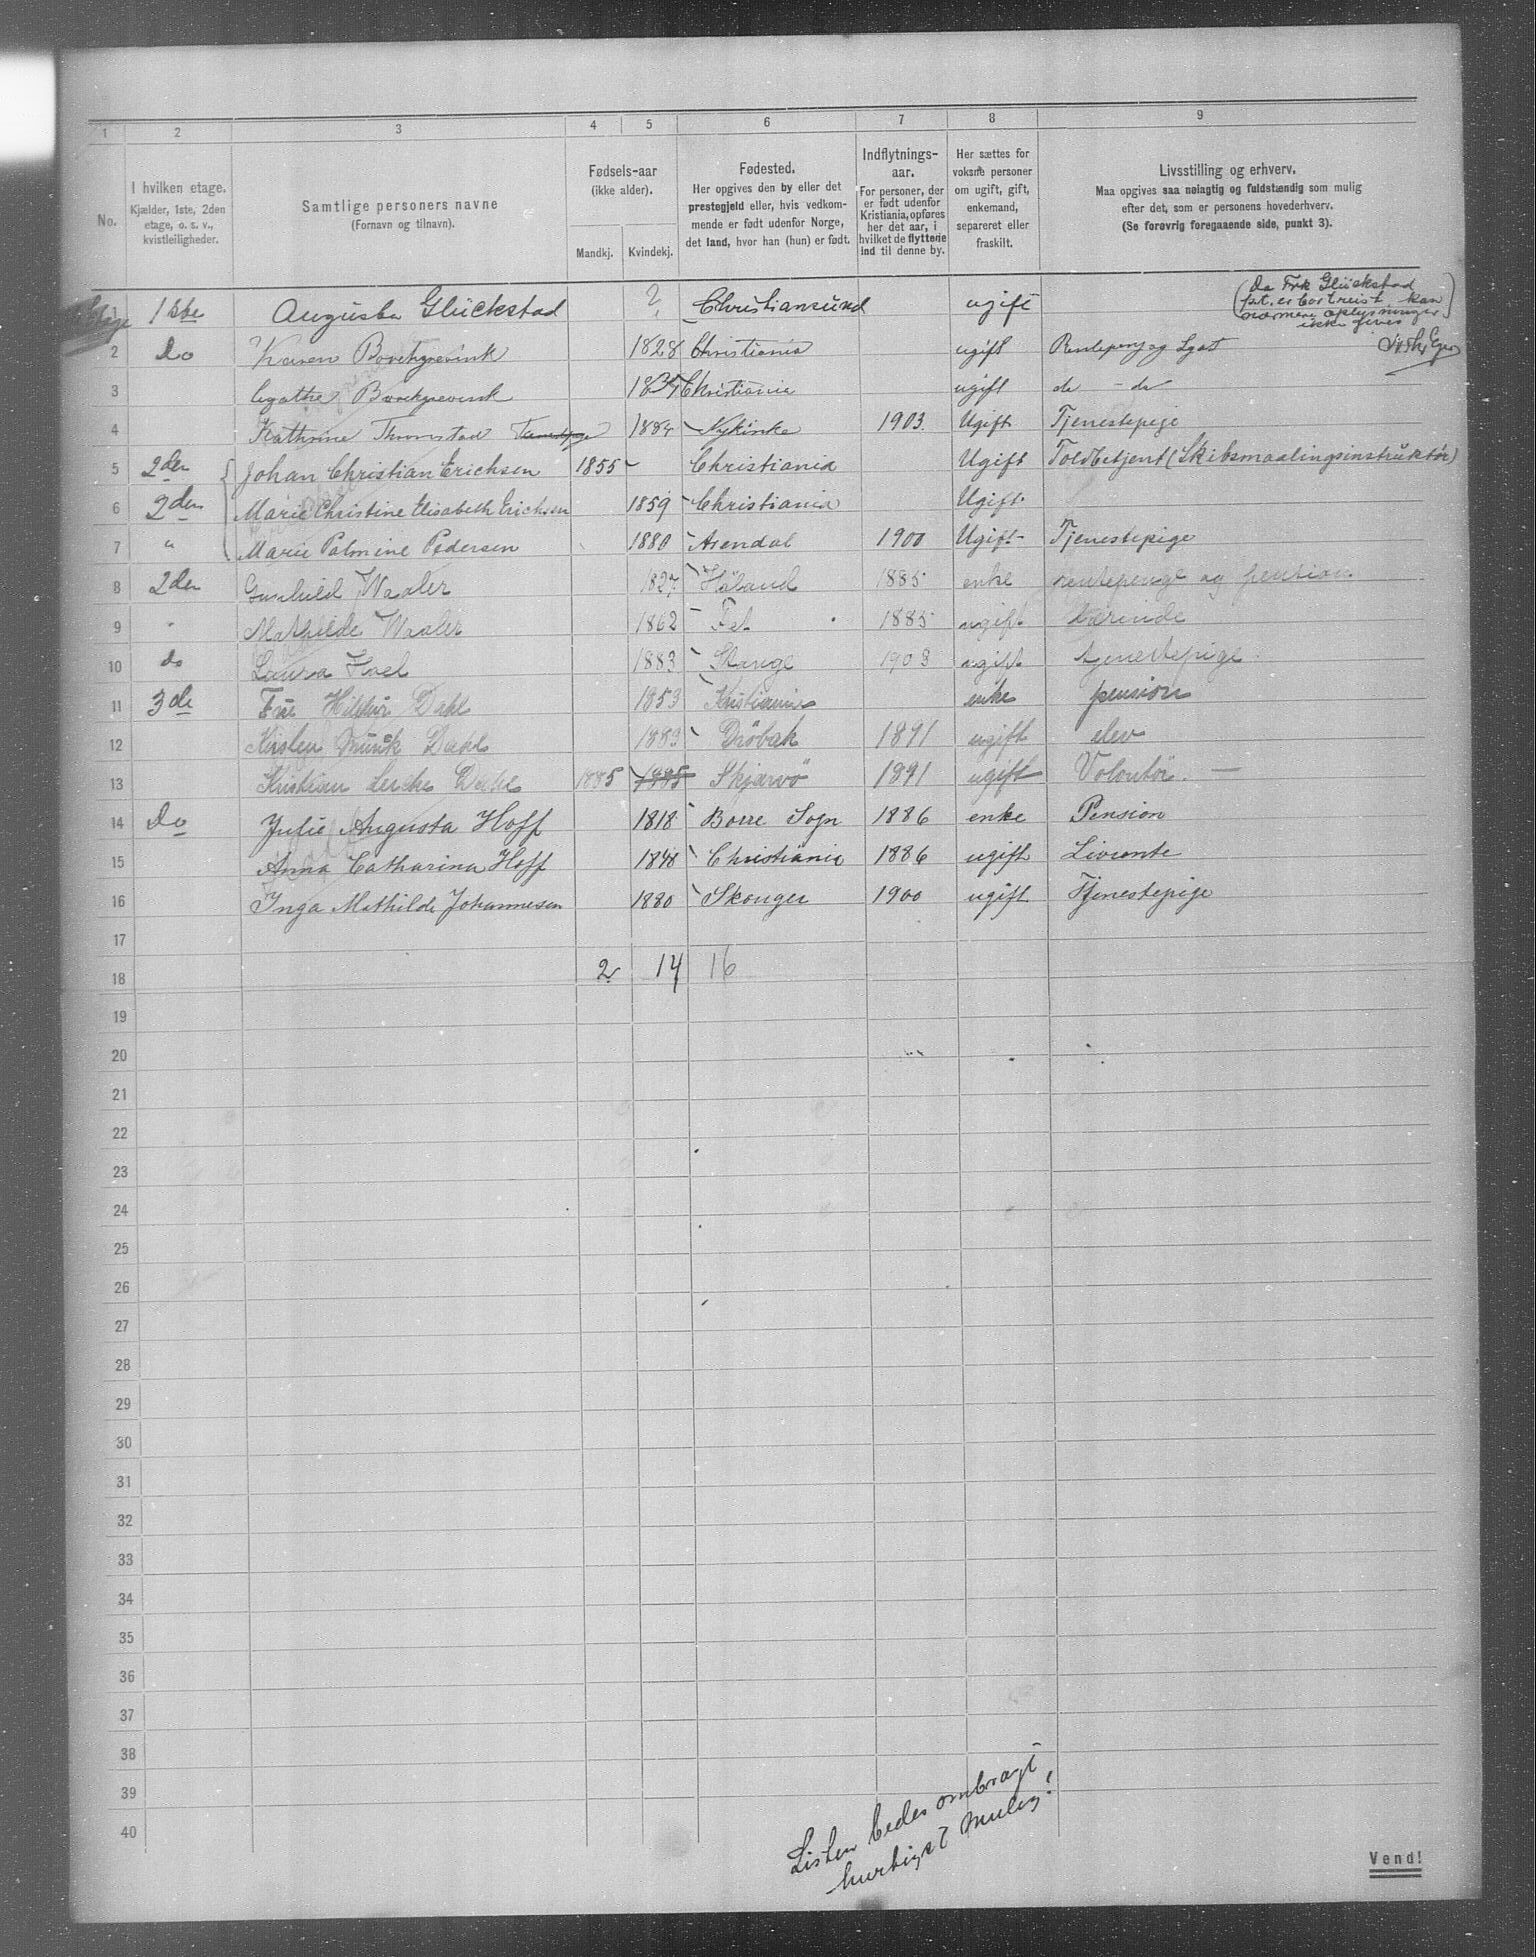 1 2 3 4 5 6 7 8 9
No.
I hvilken etage.
Kjælder, 1ste, 2den
etage, o. s. v.,
kvistleiligheder.
Samtlige personers navne
(Fornavn og tilnavn).
Fødsels-aar
(ikke alder).
Mandkj. Kvindekj.
Fødested.
Her opgives den by eller det
prestegjeld eller, hvis vedkom-
mende er født udenfor Norge,
det land, hvor han (hun) er født.
Indflytnings-
aar.
For personer, der
er født udenfor
Kristiania, opføres
her det aar, i
hvilket de flyttede
ind til denne by.
Her sættes for
voksne personer
om ugift, gift,
enkemand,
separeret eller
fraskilt.
Livsstilling og erhverv.
Maa opgives saa nøiagtig og fuldstændig som mulig
efter det, som er personens hovederhverv.
(Se forøvrig foregaaende side, punkt 3).
1 1ste Augusta Glückstad ? Christiansund ugift
(Da Frk Glückstad
fat. er bortreist kan
nærmere oplysninger
ikke gives)
2 Do Karen Borchgrevink 1828 Christiania ugift Rentepeng og Lgat
3 Agathe Borchgrevink 1834 Christiania ugift do - do
4 Kathrine Thronstad 1884 Nykirke 1903. Ugift Tjenestepige
5 2den Johan Christian Erichsen 1855 Christiania Ugift Toldbetjent (Skibsmaalingsinstruktør)
6 2den Marie Christine Elisabeth Erichsen 1859 Christiania Ugift
7 " Marie Palmine Pedersen 1880 Arendal 1900 Ugift Tjenestepige
8 2den Gunhild Waaler 1827 Høland 1885 enke rentepenge og pention
9 " Mathilde Waaler 1862 Fet 1885 ugift Lærinde
10 do Laura Hoel 1883 Stange 1903 ugift tjenestepige
11 3de Fru Dahl 1853 Kristiania enke pension
12 Kirsten Munk Dahl 1889 Drøbak 1891 ugift elev
13 Kristian Lerche Dahl 1885 1885 Skjærvø 1891 ugift Volontør. —
14 Do Julie Augusta Hoff 1818 Borre Sogn 1886 enke Pension
15 Anna Catharina Hoff 1848 Christiania 1886 ugift Livrente
16 Inga Mathilde Johannesen 1880 Skouger 1900 ugift Tjenestepige
17
18 2 14 16
19
20
21
22
23
24
25
26
27
28
29
30
31
32
33
34
35
36
37
38
39
40
Listen bedes ombragt
hurtigst mulig!
Vend!